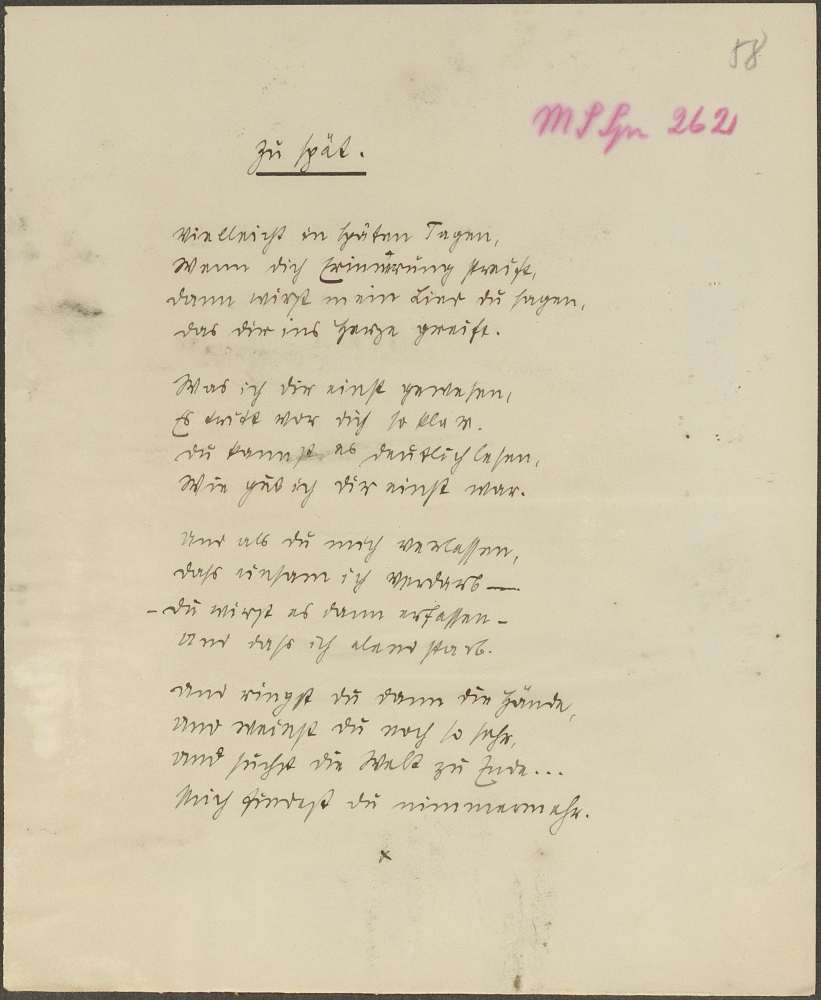 58
M S Spr 262
Zu spät.
Vielleicht in späten Tagen,
Wenn dich Erinnerung streift,
Dann wirst mein Lied du sagen,
Das dir ins Herze greift.
Was ich dir einst gewesen,
Es tritt vor dich so klar.
Du kannst es deutlich lesen,
Wie gut ich dir einst war.
Und als du mich verlassen,
Dass einsam ich verdarb —
– Du wirst es dann erfassen –
Und dass ich elend starb.
Und ringst du dann die Hände,
Und weinst du noch so sehr,
Und suchst die Welt zu Ende...
Mich findest du nimmermehr.
x